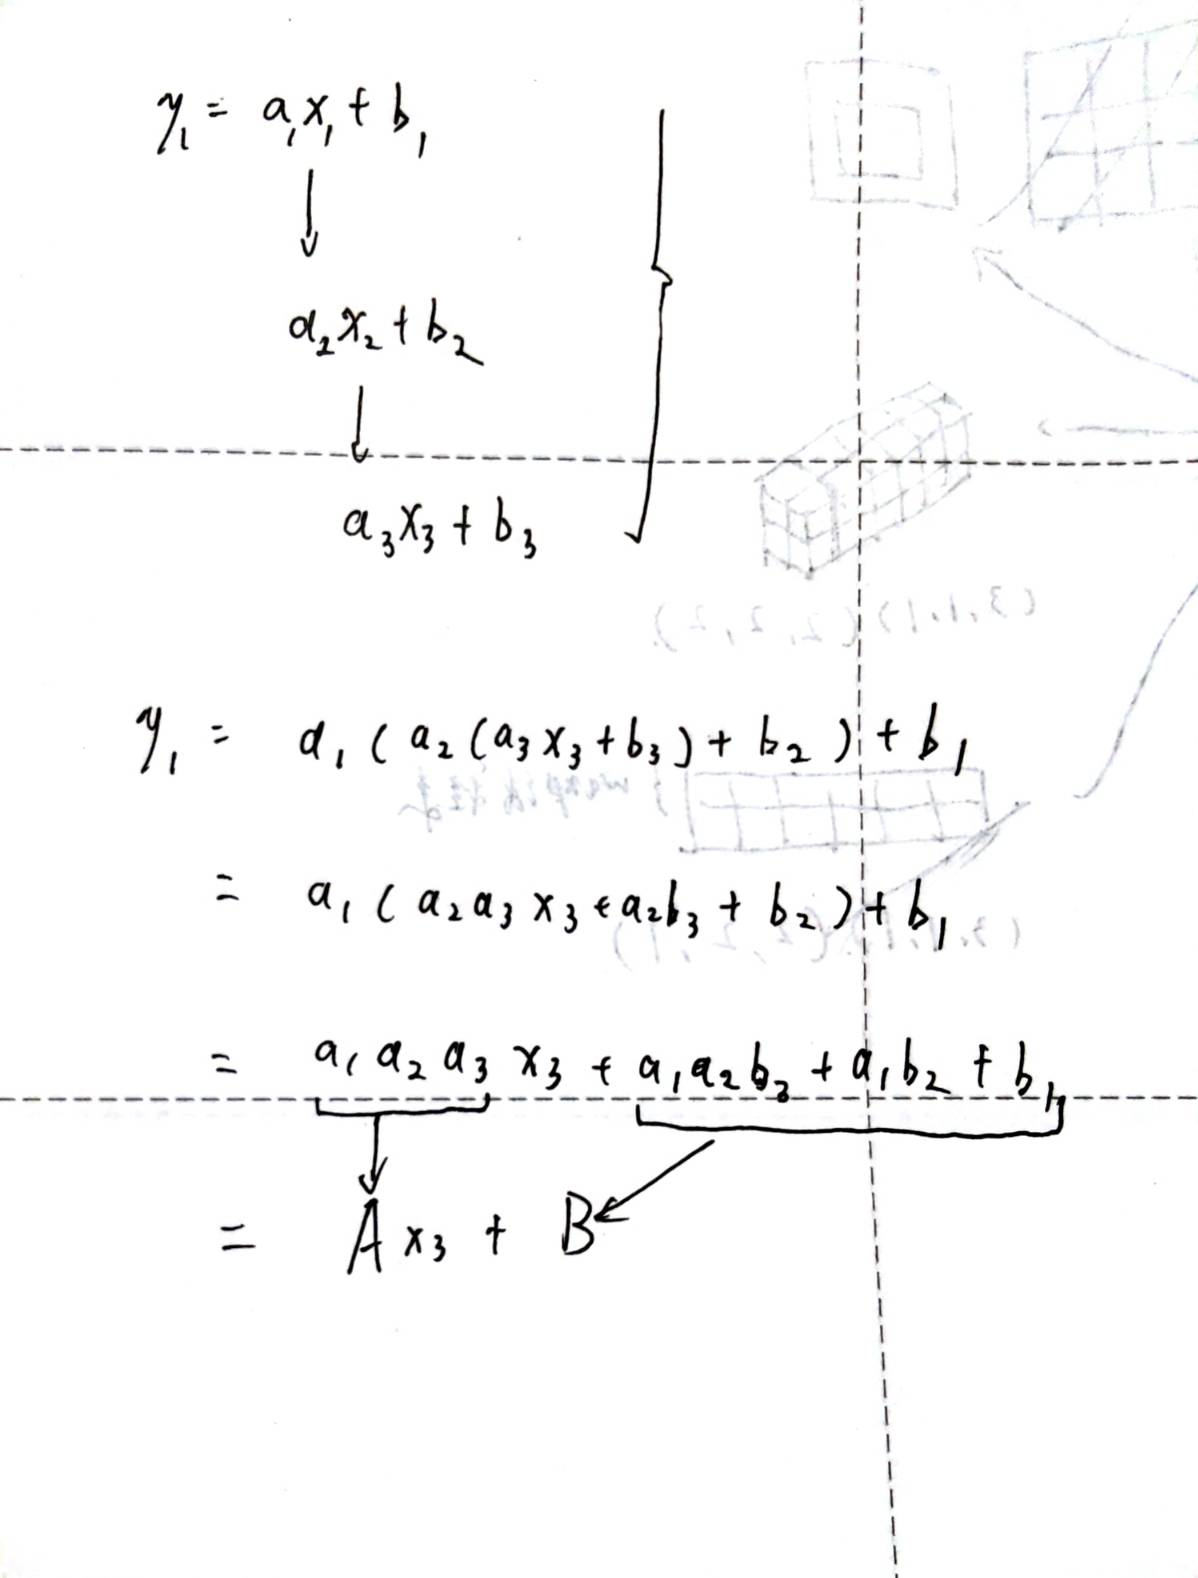 y₁ = a₁x₁ + b₁
a₂x₂ + b₂
a₃x₃ + b₃
(3,1,1) (2,2,2)
y₁ = a₁(a₂(a₃x₃+b₃)+b₂)+b₁
= a₁(a₂a₃x₃+a₂b₃+b₂)+b₁
= a₁a₂a₃x₃+a₁a₂b₃+a₁b₂+b₁
= Ax₃ + B